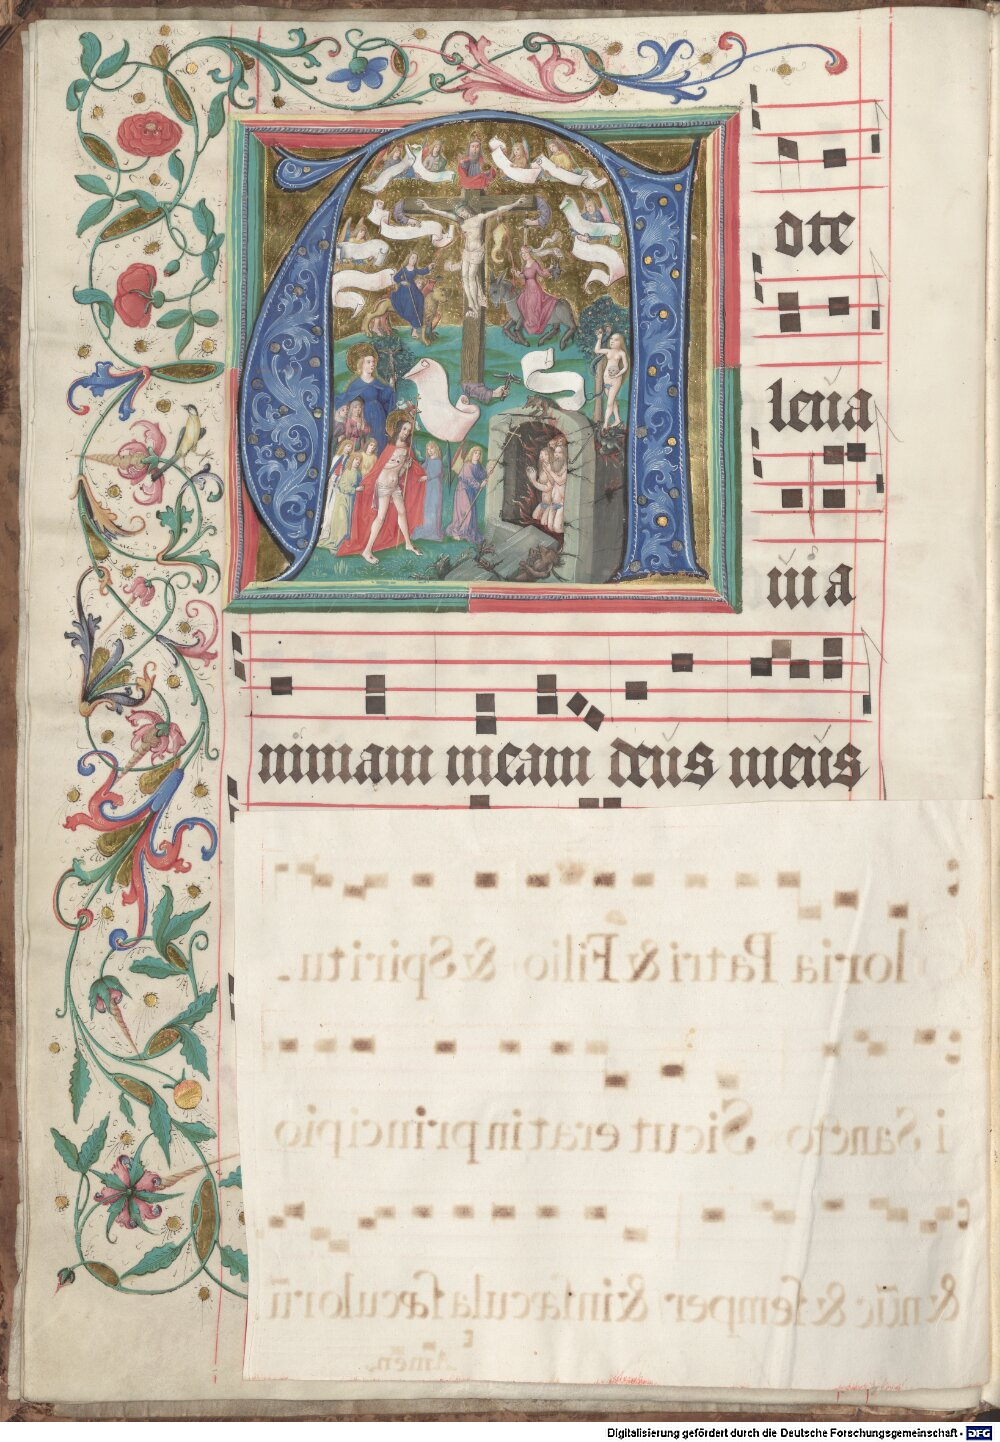 Ad te
leua
ui a
nimam meam deus meus
loria Patri & Filio & Spiritu-
i Sancto Sicut erat in principio
& nūc & ſemper & in ſæcula ſæculorū
Amen.
Digitalisierung gefördert durch die Deutsche Forschungsgemeinschaft - DFG